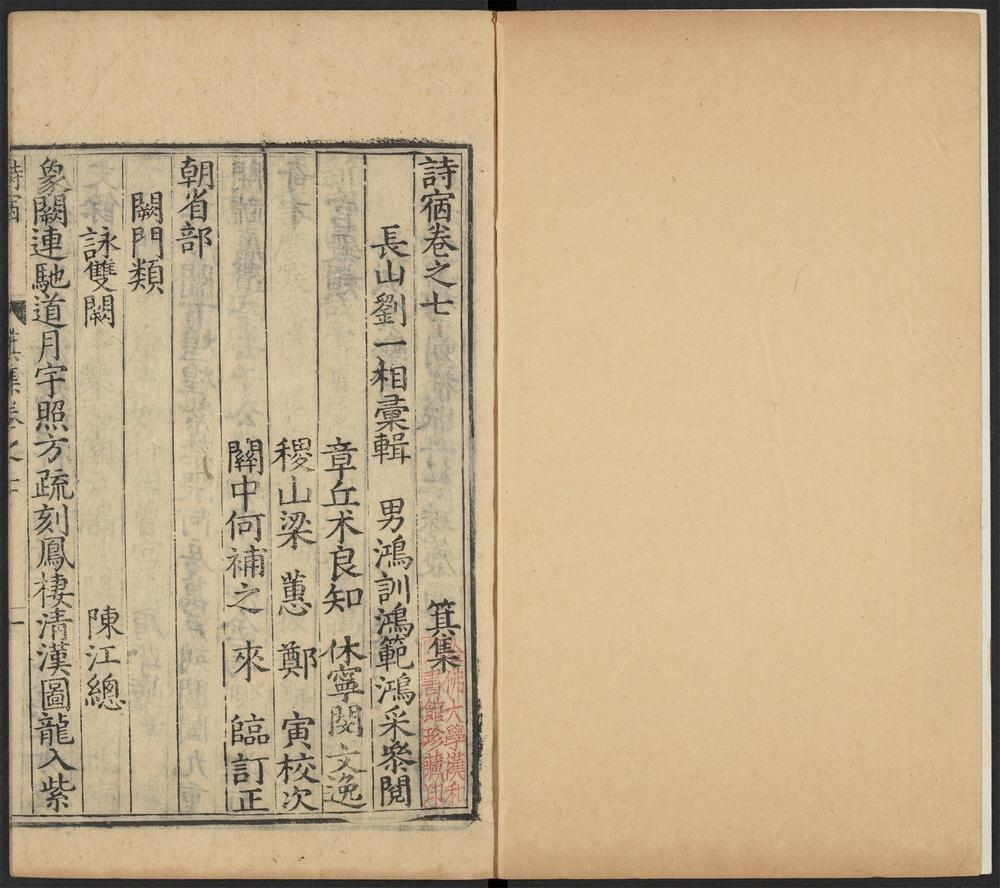 詩宿卷之七 箕集
長山劉一相彙輯 男鴻訓鴻範鴻采叅閱
章丘术良知 休寧閔文逸
稷山梁 蕙 鄭 寅校次
關中何補之 來 臨訂正
朝省部
闕門類
詠雙闕 陳江總
象闕連馳道月宇照方疏刻鳳棲清漢圖龍入紫
詩宿 箕集卷之七 一
哈佛大學漢和圖書館珍藏印